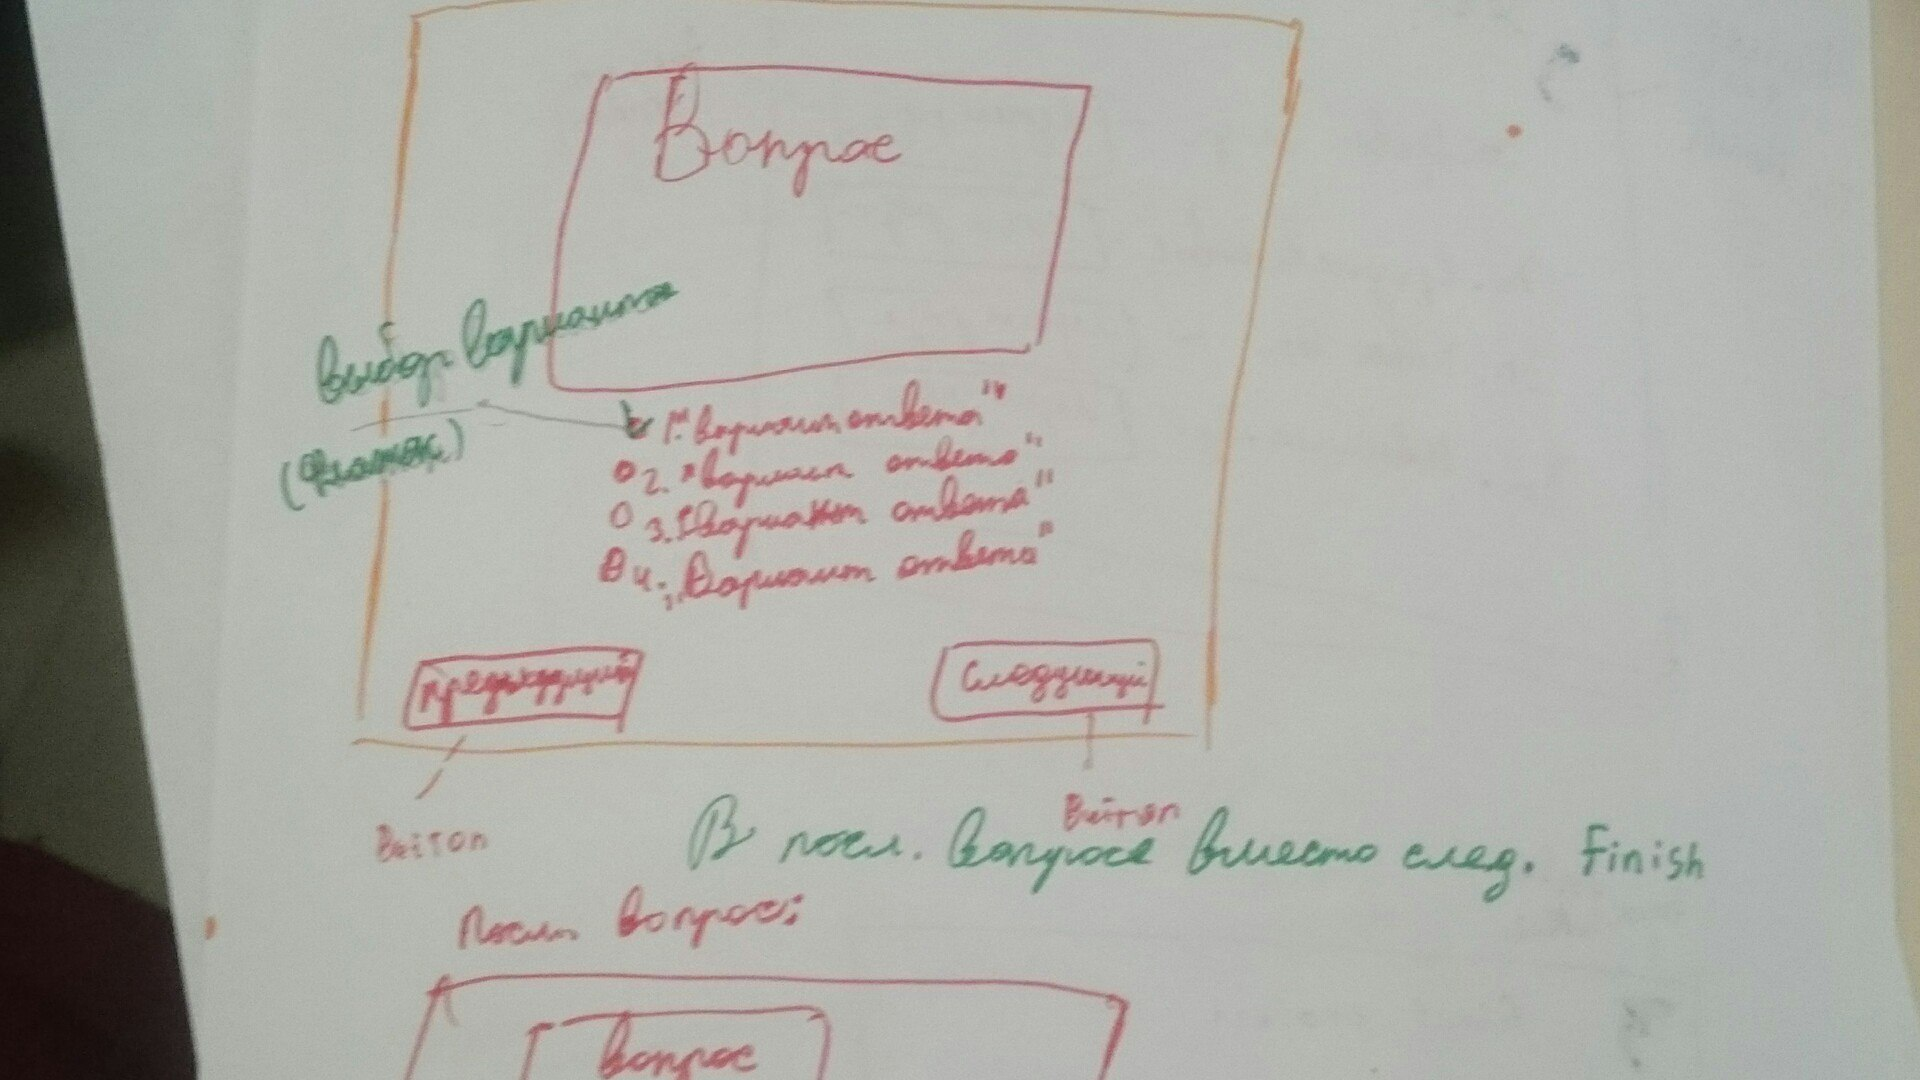 Вопрос
Выбор варианта
(Флажок)
1. "Вариант ответа"
2. "Вариант ответа"
3. "Вариант ответа"
4. „Вариант ответа"
предыдущий
Следующий
Button
Button
В посл. вопросе вместо след. Finish
Посл. вопрос:
Вопрос